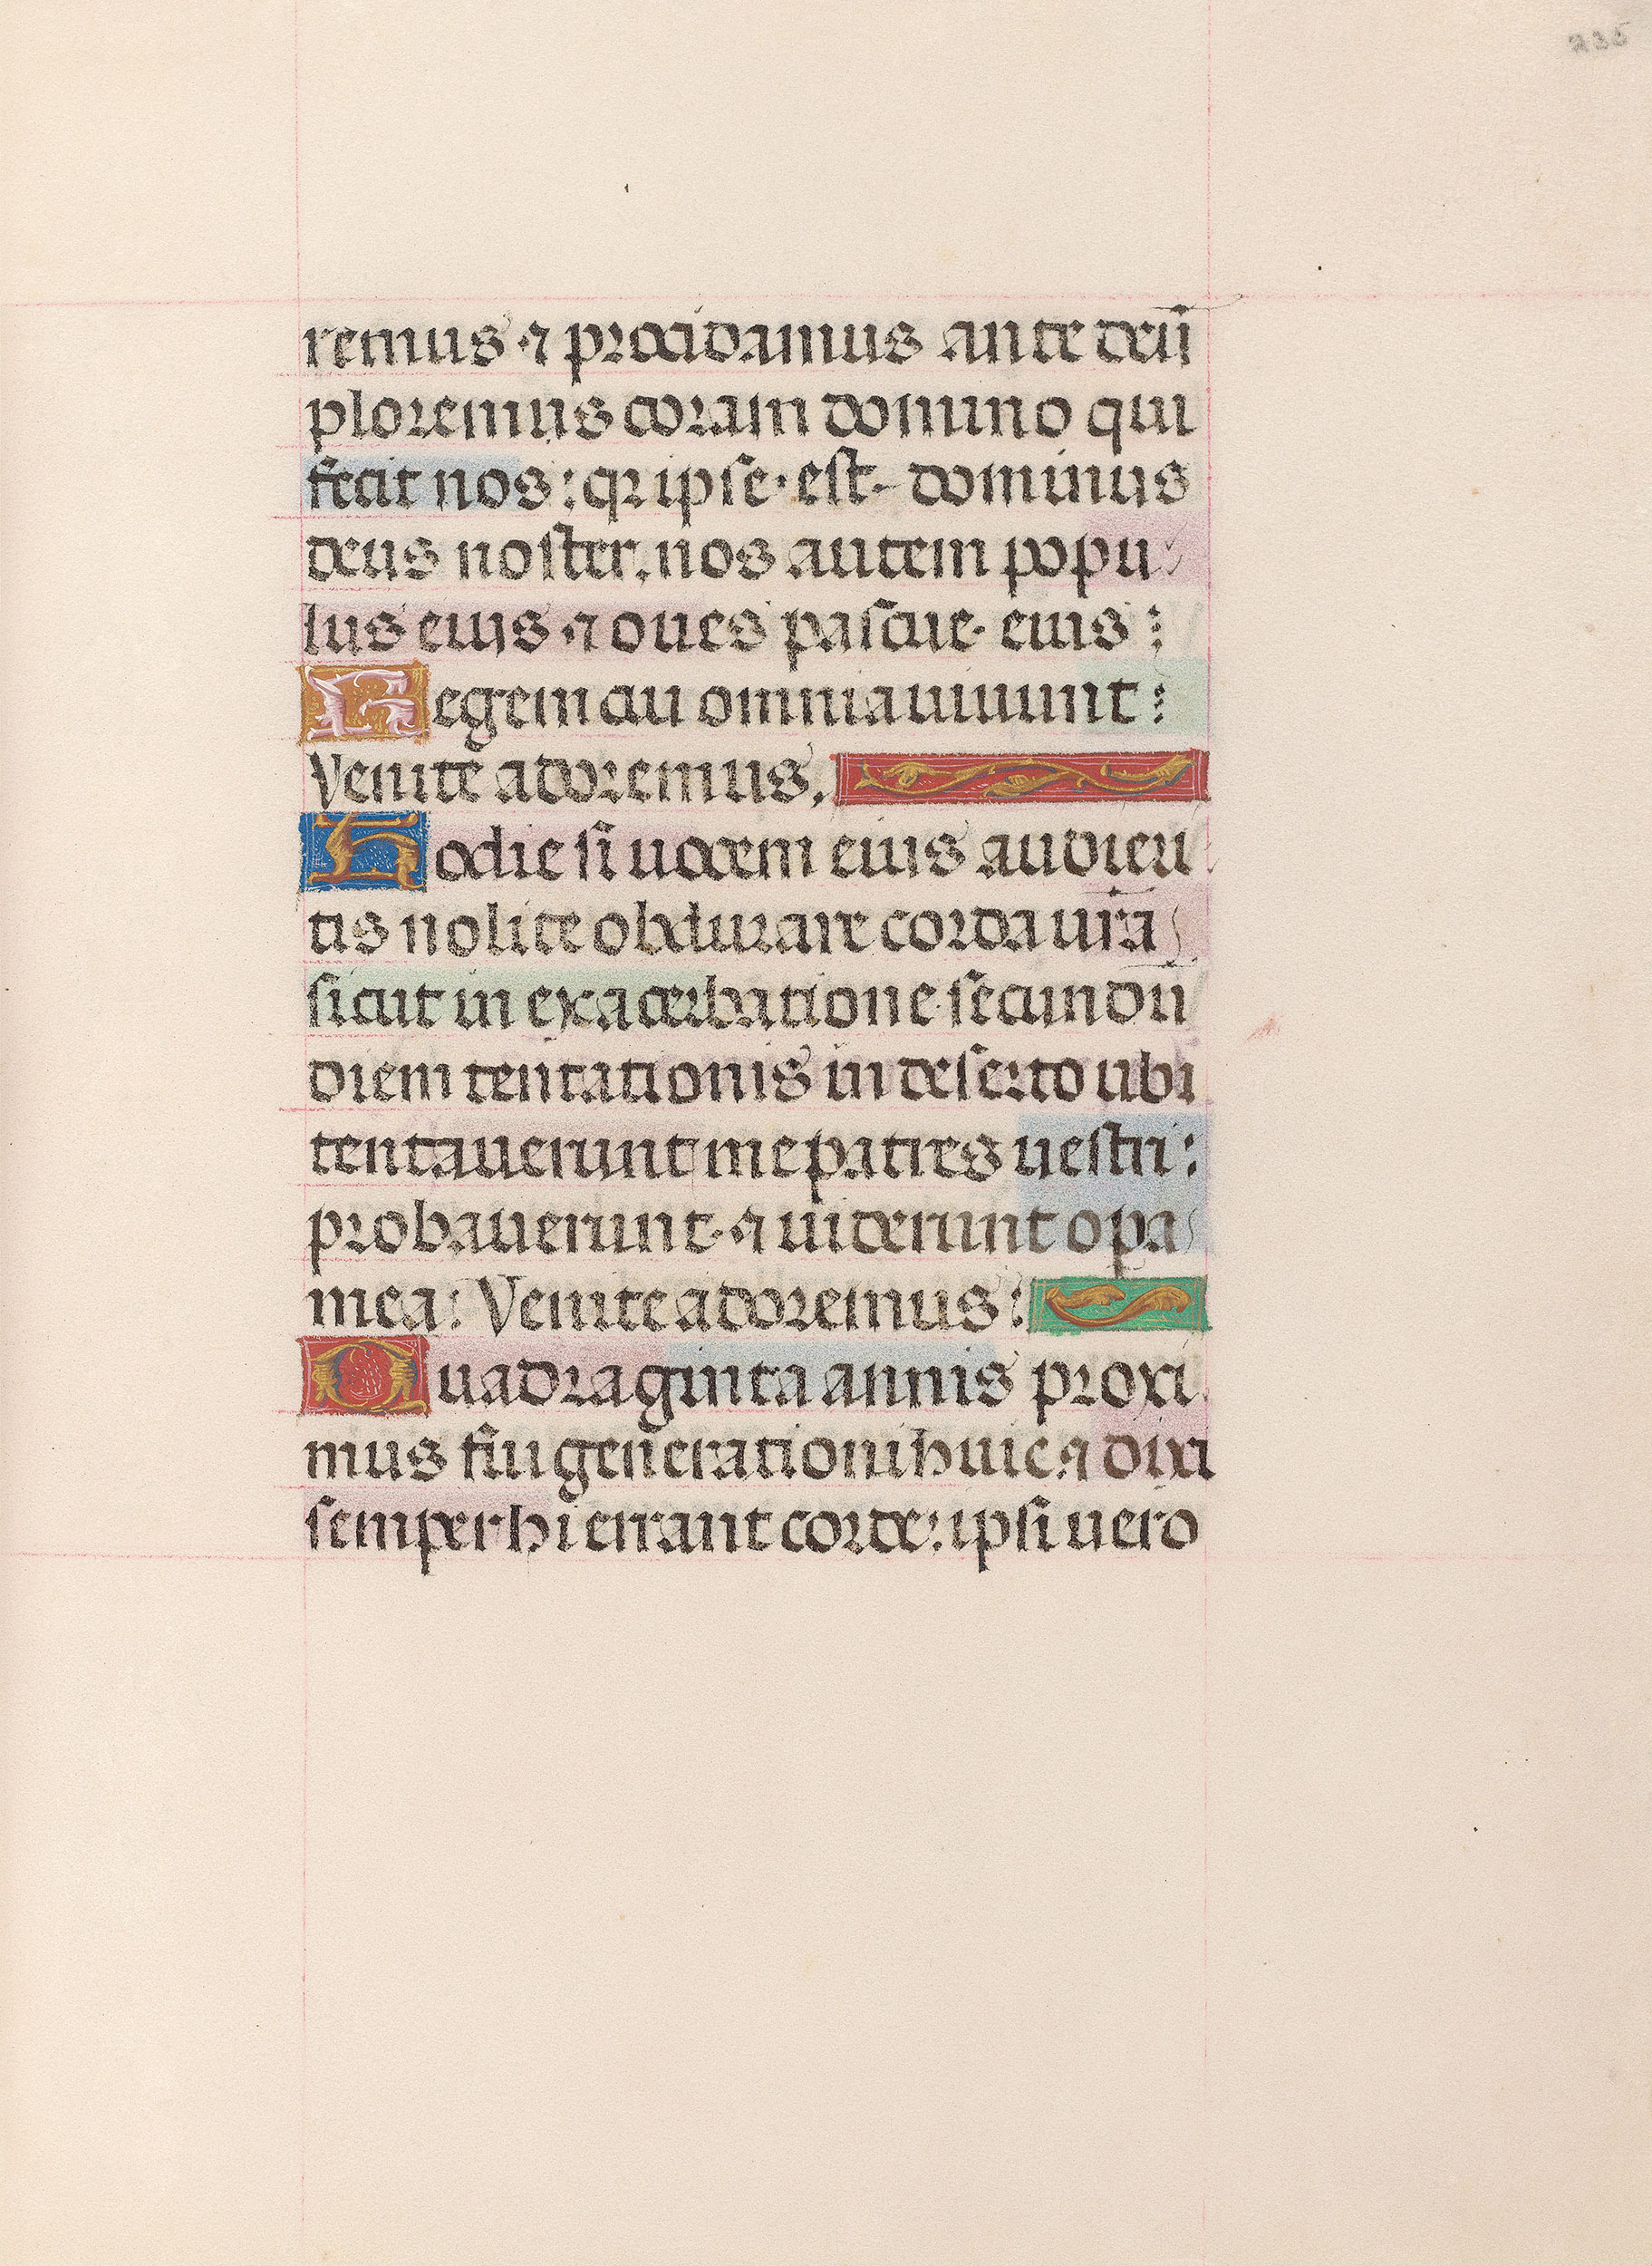 235
remus ⁊ procidamus ante deū
ploremus coram domino qui
fecit nos: qr ipse est dominus
deus noster. nos autem popu
lus eius ⁊ oues pascue eius:
Regem cui omnia uiuunt:
Venite adoremus.
Hodie si uocem eius audieri
tis nolite obdurare corda ura
sicut in exacerbatione secundū
diem tentationis in deserto ubi
tentauerunt me patres uestri:
probauerunt ⁊ uiderunt opa
mea: Venite adoremus:
Quadraginta annis proxi
mus fui generationi huic ⁊ dixi
semper hi errant corde: ipsi uero